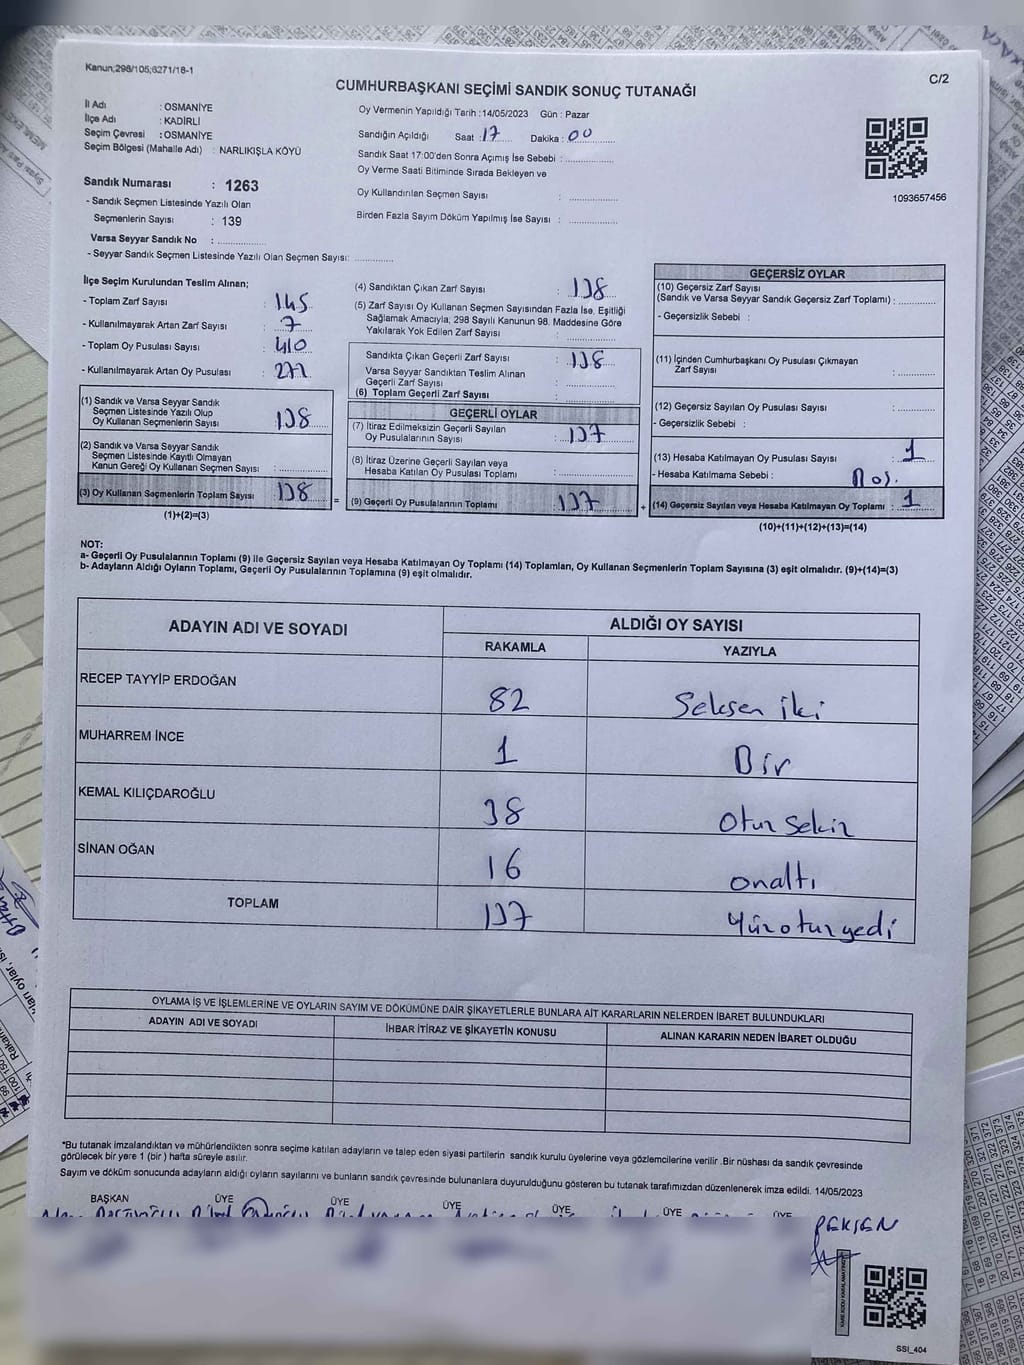 Kanun;298/105;6271/18-1
C/2
CUMHURBAŞKANI SEÇİMİ SANDIK SONUÇ TUTANAĞI
İl Adı : OSMANİYE
İlçe Adı : KADİRLİ
Seçim Çevresi : OSMANİYE
Seçim Bölgesi (Mahalle Adı) : NARLIKIŞLA KÖYÜ
Sandık Numarası : 1263
- Sandık Seçmen Listesinde Yazılı Olan
Seçmenlerin Sayısı : 139
Varsa Seyyar Sandık No :
- Seyyar Sandık Seçmen Listesinde Yazılı Olan Seçmen Sayısı:
Oy Vermenin Yapıldığı Tarih :14/05/2023 Gün : Pazar
Sandığın Açıldığı Saat : 17 Dakika : 00
Sandık Saat 17:00'den Sonra Açımış İse Sebebi :
Oy Verme Saati Bitiminde Sırada Bekleyen ve
Oy Kullandırılan Seçmen Sayısı :
Birden Fazla Sayım Döküm Yapılmış İse Sayısı :
1093657456
İlçe Seçim Kurulundan Teslim Alınan;
- Toplam Zarf Sayısı : 145
- Kullanılmayarak Artan Zarf Sayısı : 7
- Toplam Oy Pusulası Sayısı : 410
- Kullanılmayarak Artan Oy Pusulası : 272
(1) Sandık ve Varsa Seyyar Sandık
Seçmen Listesinde Yazılı Olup
Oy Kullanan Seçmenlerin Sayısı : 138
(2) Sandık ve Varsa Seyyar Sandık
Seçmen Listesinde Kayıtlı Olmayan
Kanun Gereği Oy Kullanan Seçmen Sayısı :
(3) Oy Kullanan Seçmenlerin Toplam Sayısı : 138
(1)+(2)=(3)
(4) Sandıktan Çıkan Zarf Sayısı : 138
(5) Zarf Sayısı Oy Kullanan Seçmen Sayısından Fazla İse, Eşitliği
Sağlamak Amacıyla; 298 Sayılı Kanunun 98. Maddesine Göre
Yakılarak Yok Edilen Zarf Sayısı :
Sandıkta Çıkan Geçerli Zarf Sayısı : 138
Varsa Seyyar Sandıktan Teslim Alınan
Geçerli Zarf Sayısı :
(6) Toplam Geçerli Zarf Sayısı :
GEÇERLİ OYLAR
(7) İtiraz Edilmeksizin Geçerli Sayılan
Oy Pusulalarının Sayısı : 137
(8) İtiraz Üzerine Geçerli Sayılan veya
Hesaba Katılan Oy Pusulası Toplamı :
= (9) Geçerli Oy Pusulalarının Toplamı : 137
GEÇERSİZ OYLAR
(10) Geçersiz Zarf Sayısı
(Sandık ve Varsa Seyyar Sandık Geçersiz Zarf Toplamı) :
- Geçersizlik Sebebi :
(11) İçinden Cumhurbaşkanı Oy Pusulası Çıkmayan
Zarf Sayısı :
(12) Geçersiz Sayılan Oy Pusulası Sayısı :
- Geçersizlik Sebebi :
(13) Hesaba Katılmayan Oy Pusulası Sayısı : 1
- Hesaba Katılmama Sebebi :
+ (14) Geçersiz Sayılan veya Hesaba Katılmayan Oy Toplamı : 1
(10)+(11)+(12)+(13)=(14)
NOT:
a- Geçerli Oy Pusulalarının Toplamı (9) ile Geçersiz Sayılan veya Hesaba Katılmayan Oy Toplamı (14) Toplamları, Oy Kullanan Seçmenlerin Toplam Sayısına (3) eşit olmalıdır. (9)+(14)=(3)
b- Adayların Aldığı Oyların Toplamı, Geçerli Oy Pusulalarının Toplamına (9) eşit olmalıdır.
ADAYIN ADI VE SOYADI ALDIĞI OY SAYISI
RAKAMLA YAZIYLA
RECEP TAYYİP ERDOĞAN 82 Seksen iki
MUHARREM İNCE 1 Bir
KEMAL KILIÇDAROĞLU 38 Otuz Sekiz
SİNAN OĞAN 16 onaltı
TOPLAM 137 Yüzotuzyedi
OYLAMA İŞ VE İŞLEMLERİNE VE OYLARIN SAYIM VE DÖKÜMÜNE DAİR ŞİKAYETLERLE BUNLARA AİT KARARLARIN NELERDEN İBARET BULUNDUKLARI
ADAYIN ADI VE SOYADI İHBAR İTİRAZ VE ŞİKAYETİN KONUSU ALINAN KARARIN NEDEN İBARET OLDUĞU
*Bu tutanak imzalandıktan ve mühürlendikten sonra seçime katılan adayların ve talep eden siyasi partilerin sandık kurulu üyelerine veya gözlemcilerine verilir .Bir nüshası da sandık çevresinde
görülecek bir yere 1 (bir ) hafta süreyle asılır.
Sayım ve döküm sonucunda adayların aldığı oyların sayılarını ve bunların sandık çevresinde bulunanlara duyurulduğunu gösteren bu tutanak tarafımızdan düzenlenerek imza edildi. 14/05/2023
BAŞKAN ÜYE ÜYE ÜYE ÜYE ÜYE ÜYE
PEKŞEN
SSI_404